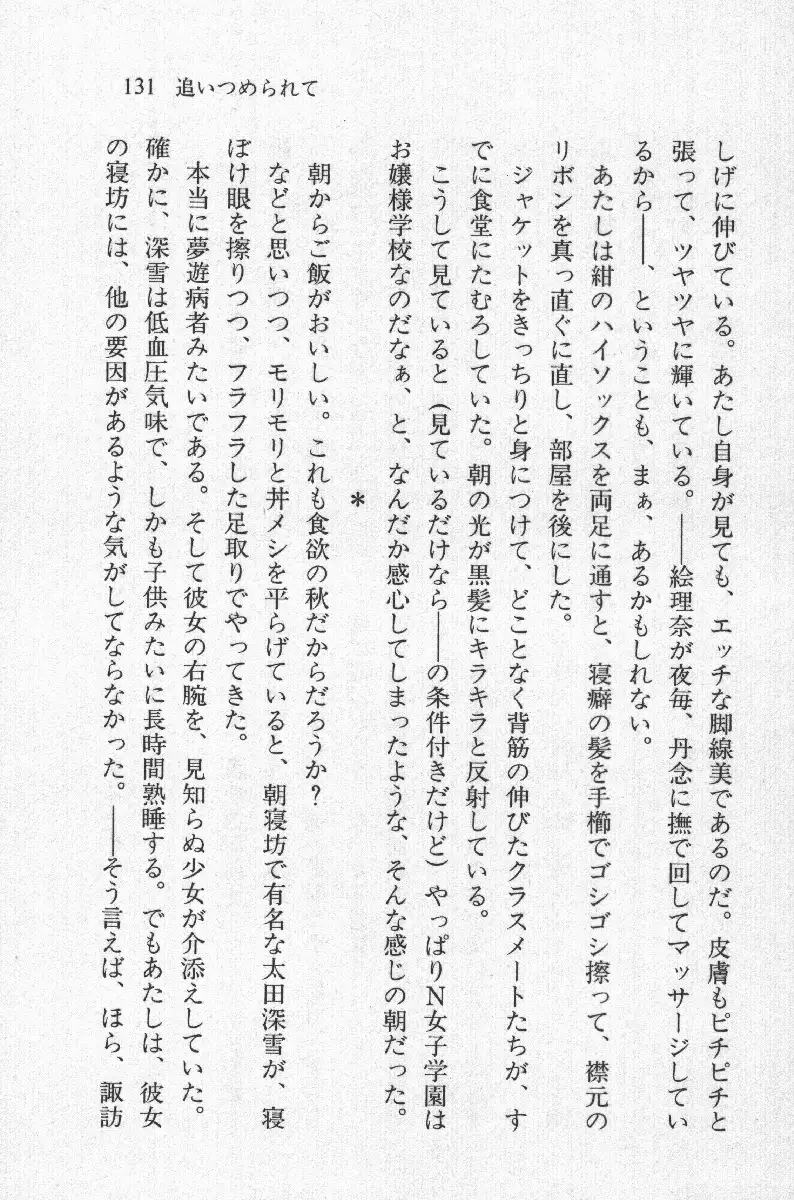 131 追いつめられて
しげに伸びている。あたし自身が見ても、エッチな脚線美であるのだ。皮膚もピチピチと
張って、ツヤツヤに輝いている。——絵理奈が夜毎、丹念に撫で回してマッサージしてい
るから——、ということも、まぁ、あるかもしれない。
　あたしは紺のハイソックスを両足に通すと、寝癖の髪を手櫛でゴシゴシ擦って、襟元の
リボンを真っ直ぐに直し、部屋を後にした。
　ジャケットをきっちりと身につけて、どことなく背筋の伸びたクラスメートたちが、す
でに食堂にたむろしていた。朝の光が黒髪にキラキラと反射している。
　こうして見ていると（見ているだけなら——の条件付きだけど）やっぱりN女子学園は
お嬢様学校なのだなぁ、と、なんだか感心してしまったような、そんな感じの朝だった。
＊
　朝からご飯がおいしい。これも食欲の秋だからだろうか？
　などと思いつつ、モリモリと丼メシを平らげていると、朝寝坊で有名な太田深雪が、寝
ぼけ眼を擦りつつ、フラフラした足取りでやってきた。
　本当に夢遊病者みたいである。そして彼女の右腕を、見知らぬ少女が介添えしていた。
確かに、深雪は低血圧気味で、しかも子供みたいに長時間熟睡する。でもあたしは、彼女
の寝坊には、他の要因があるような気がしてならなかった。——そう言えば、ほら、諏訪